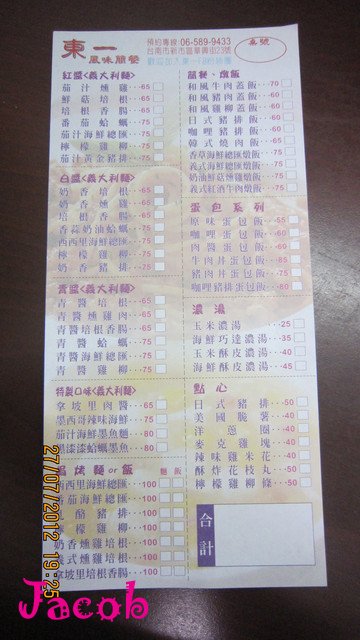 東一
風味簡餐
預約專線:06-589-9433
台南市新市區華興街23號
桌號
紅醬<義大利麵>
茄汁燻雞--65
鮮菇培根--65
培根香腸--65
番茄蛤蠣--75
茄汁海鮮總匯--75
檸檬雞柳--75
茄汁黃金豬排--75
白醬<義大利麵>
奶香培根--65
奶香燻雞--65
培根香腸--65
香蒜奶油蛤蠣--75
西西里海鮮總匯--75
檸檬雞柳--75
奶香豬排--75
青醬<義大利麵>
青醬培根--65
青醬燻雞肉--65
青醬培根香腸--65
青醬蛤蠣--75
青醬海鮮總匯--75
青醬雞柳--75
特製口味<義大利麵>
拿坡里肉醬--65
墨西哥辣味海鮮--75
茄汁海鮮墨魚麵--80
墨漆漆蛤蠣墨魚--80
焗烤麵or飯
麵 飯
西西里海鮮總匯--100
番茄海鮮總匯--100
豬排--100
檸檬雞柳--100
奶香燻雞培根--100
義式燻雞培根--100
拿坡里培根香腸--100
簡餐、燉飯
和風牛肉蓋飯--70
和風豬肉蓋飯--60
和風雞柳蓋飯--60
日式豬排飯--60
咖哩豬排飯--60
韓式燒肉飯--60
香草海鮮總匯燉飯--75
義式海鮮總匯燉飯--75
奶油鮮菇燻雞燉飯--75
義式紅酒牛肉燉飯--75
蛋包系列
原味蛋包飯--55
咖哩蛋包飯--60
肉醬蛋包飯--60
牛肉丼蛋包飯--75
豬肉丼蛋包飯--75
咖哩豬排蛋包飯--80
濃湯
玉米濃湯--25
海鮮巧達濃湯--35
玉米酥皮濃湯--35
海鮮酥皮濃湯--45
點心
日式豬排--50
美國脆薯--40
洋蔥圈--40
麥克雞塊--40
辣味雞米花--40
酥炸花枝丸--50
檸檬雞柳條--50
合計
27/07/2012 19:25
Jacob